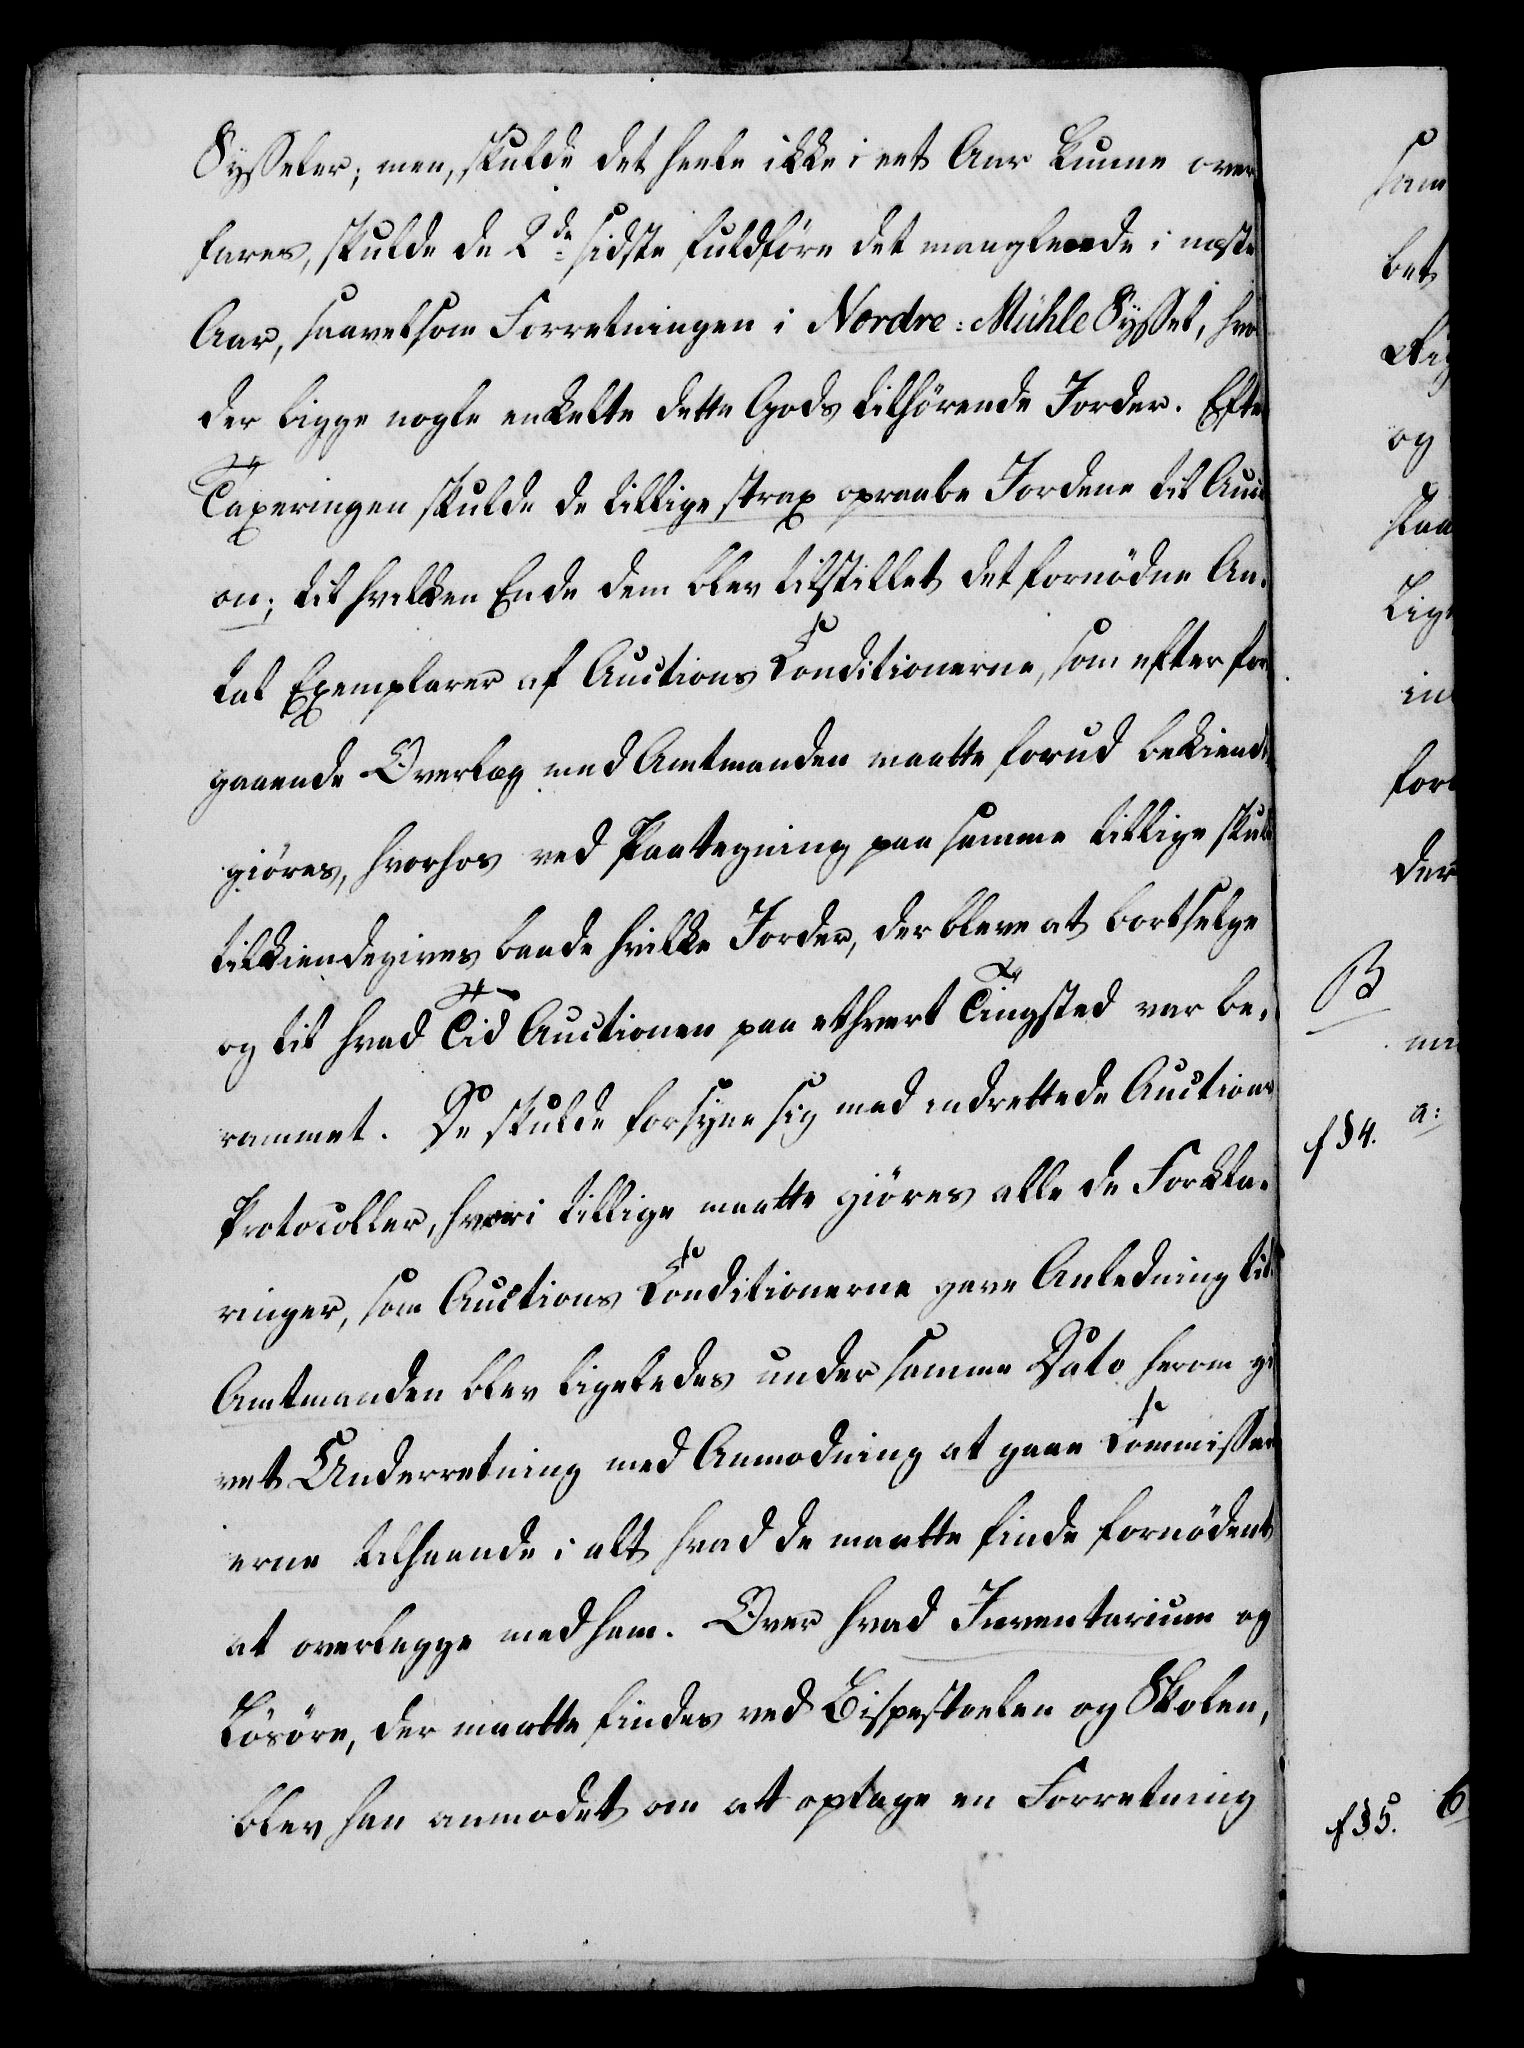 Sysseler; men, skulde det heele ikke i eet Aar kunne over
fares, skulde de 2de sidste fuldföre det manglende i næste
Aar, saavelsom Forretningen i Nordre-Mühle Syssel, hvo
der ligge nogle enkelte dette Gods tilhörende Jorder. Efte
Taxeringen skulde de tillige strax opraabe Jordene til Aucti
on; til hvilken Ende dem blev tilstillet det fornödne An-
tal Exemplarer af Auctions Conditionerne, som efter for
gaaende Overlæg med Amtmanden maatte forud bekiendt
giöres, hvorhos ved Paategning paa samme tillige skul
tilkiendegives baade hvilke Jorder, der bleve at bortselge
og til hvad Tid Auctionen paa ethvert Tingsted var be-
rammet. De skulde forsyne sig med indrettede Auctions
Protocoller, hvori tillige maatte giöres alle de Forkla-
ringer, som Auctions Conditionerne gave Anledning til
Amtmanden blev ligeledes under samme Dato herom gi
vet Underretning med Anmodning at gaae Commissai
erne tilhaande i alt hvad de maatte finde fornödent
at overlegge med ham. Over hvad Inventarium og
Lösöre, der maatte findes ved Bispestoelen og Skolen,
blev han anmodet om at optage en Forretning
som
bet
Rig
og
staa
Lige
in
for
der
B
a:
f §4.
f §5.